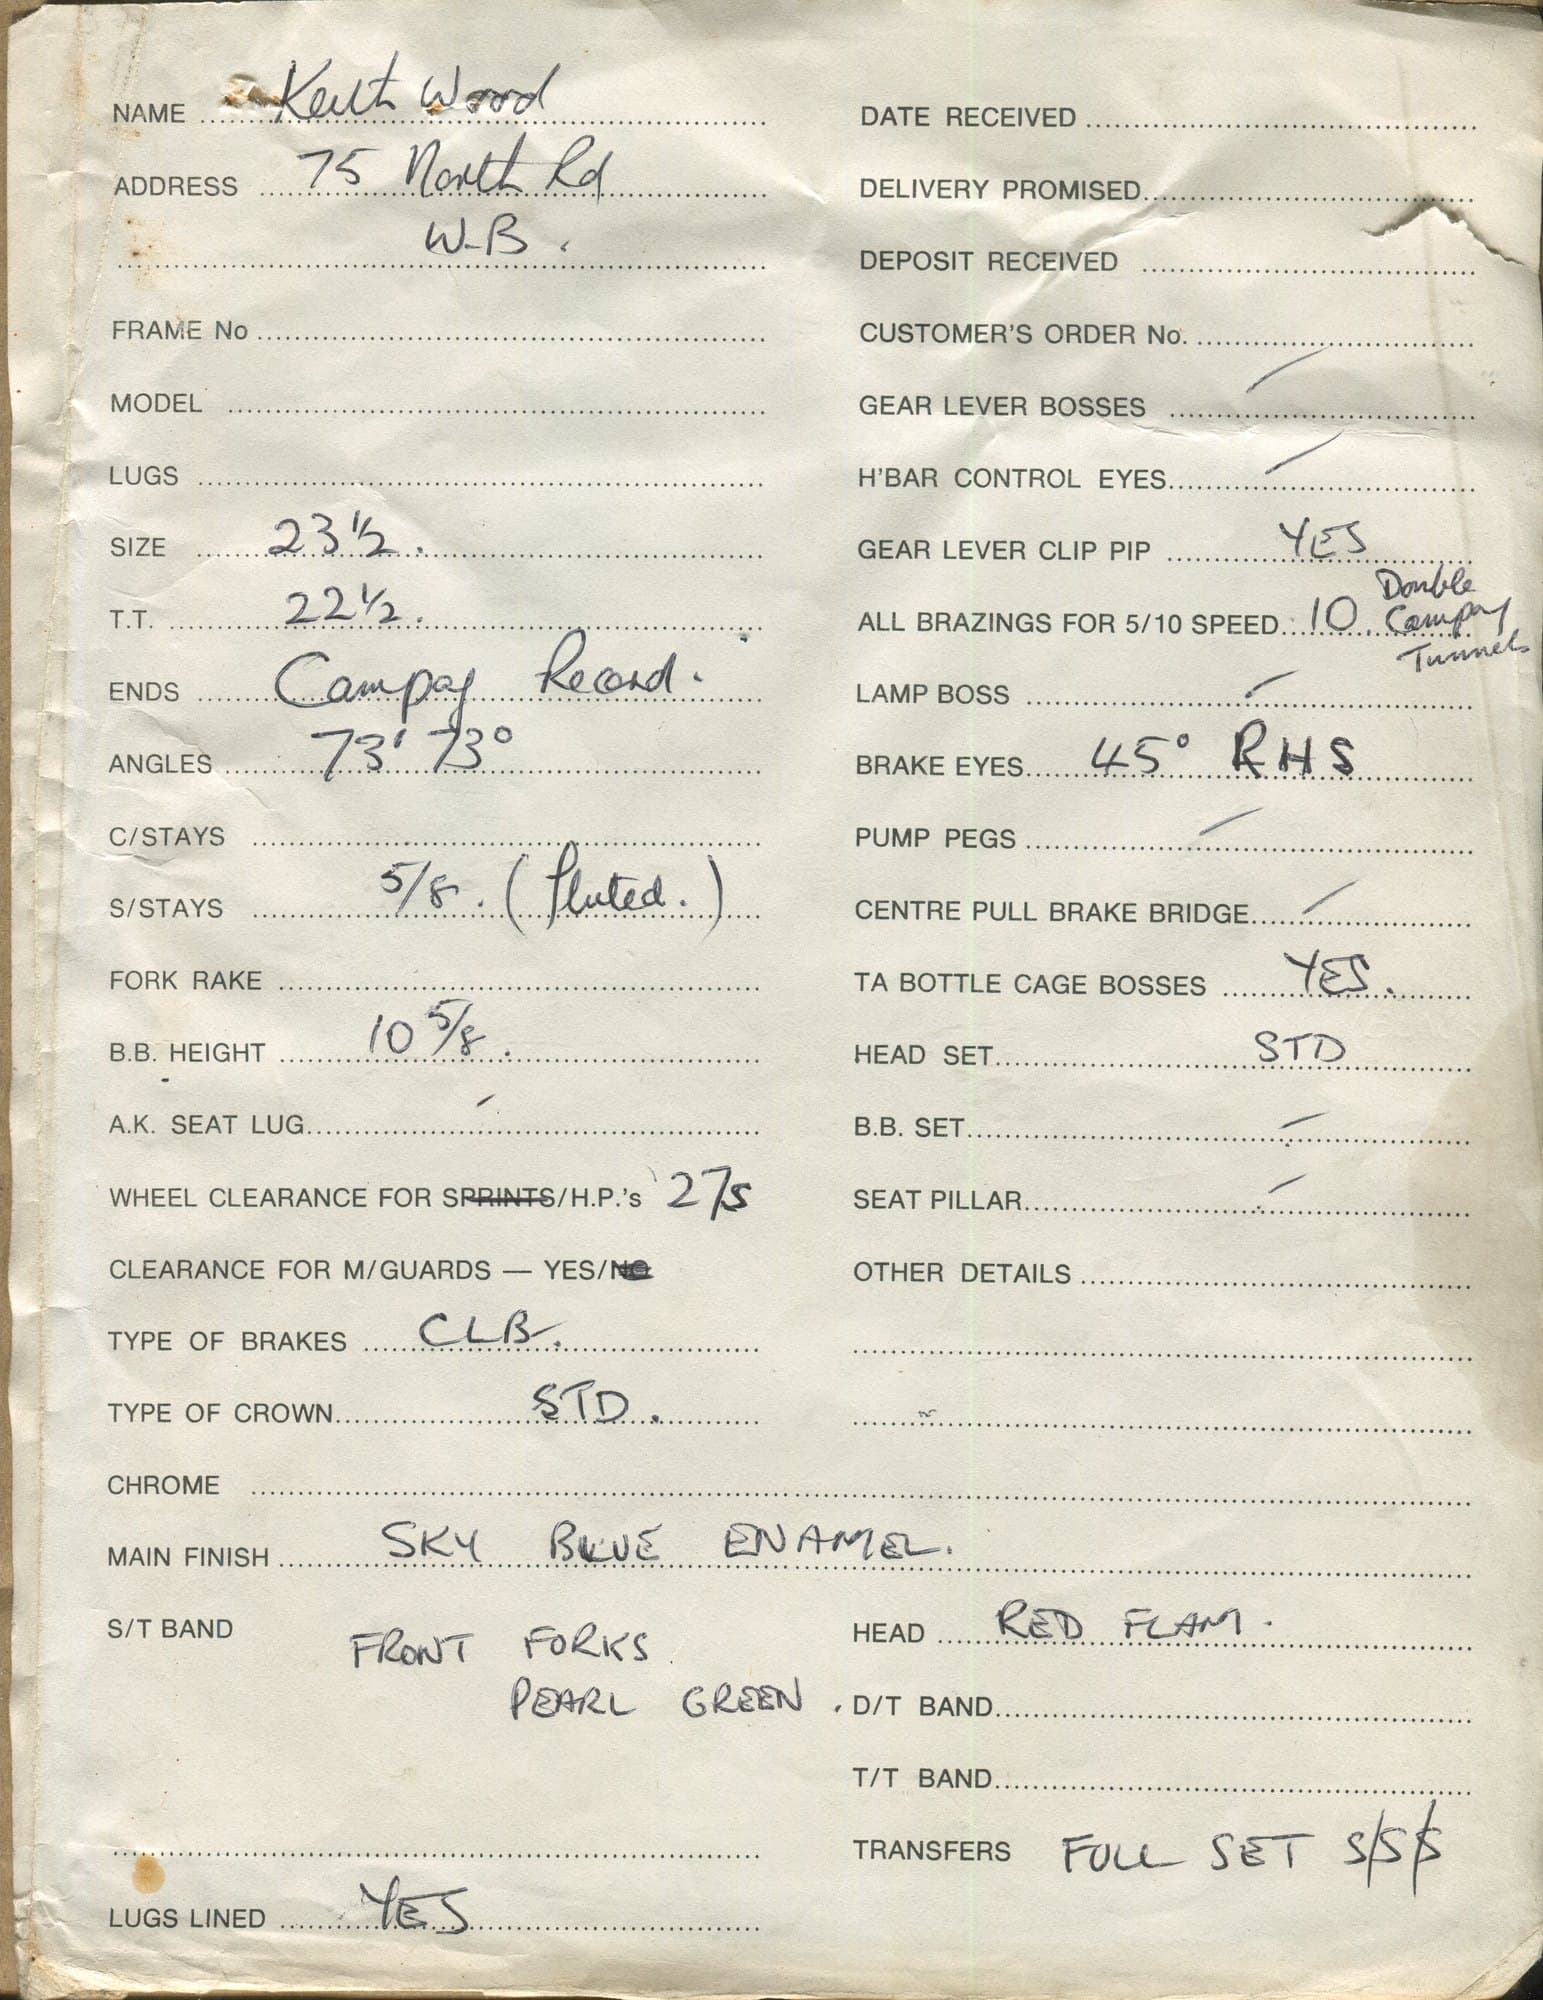 NAME Keith Wood
ADDRESS 75 North Rd
W-B.
FRAME No
MODEL
LUGS
SIZE 23 1/2.
T.T. 22 1/2.
ENDS Campag Record.
ANGLES 73° 73°
C/STAYS
S/STAYS 5/8. (Fluted.)
FORK RAKE
B.B. HEIGHT 10 5/8.
A.K. SEAT LUG
WHEEL CLEARANCE FOR SPRINTS/H.P.'s 27s
CLEARANCE FOR M/GUARDS — YES/NO
TYPE OF BRAKES CLB.
TYPE OF CROWN STD.
CHROME
MAIN FINISH SKY BLUE ENAMEL.
S/T BAND
FRONT FORKS
PEARL GREEN.
LUGS LINED YES
DATE RECEIVED
DELIVERY PROMISED
DEPOSIT RECEIVED
CUSTOMER'S ORDER No.
GEAR LEVER BOSSES /
H'BAR CONTROL EYES /
GEAR LEVER CLIP PIP YES
ALL BRAZINGS FOR 5/10 SPEED 10. Double
Campag
Tunnels
LAMP BOSS /
BRAKE EYES 45° RHS
PUMP PEGS /
CENTRE PULL BRAKE BRIDGE /
TA BOTTLE CAGE BOSSES YES.
HEAD SET STD
B.B. SET /
SEAT PILLAR /
OTHER DETAILS
HEAD RED FLAM.
D/T BAND
T/T BAND
TRANSFERS FULL SET S/S/S